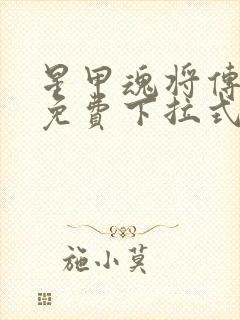 星甲魂将傳
免費下拉式
施小莫